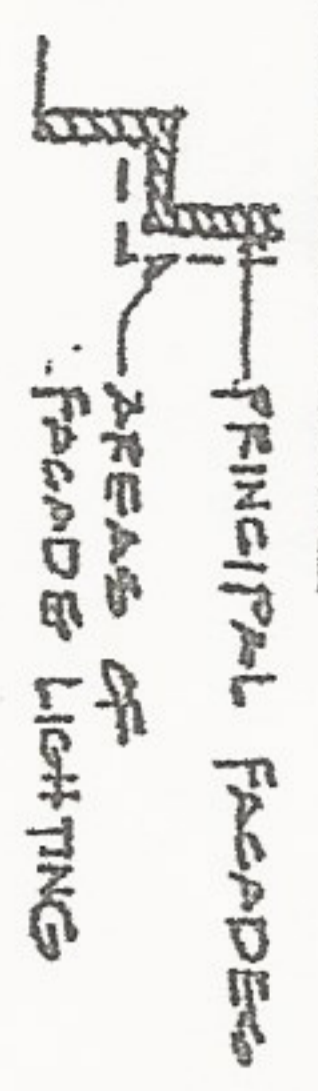 PRINCIPAL FACADES
AREAS OF
FACADE LIGHTING